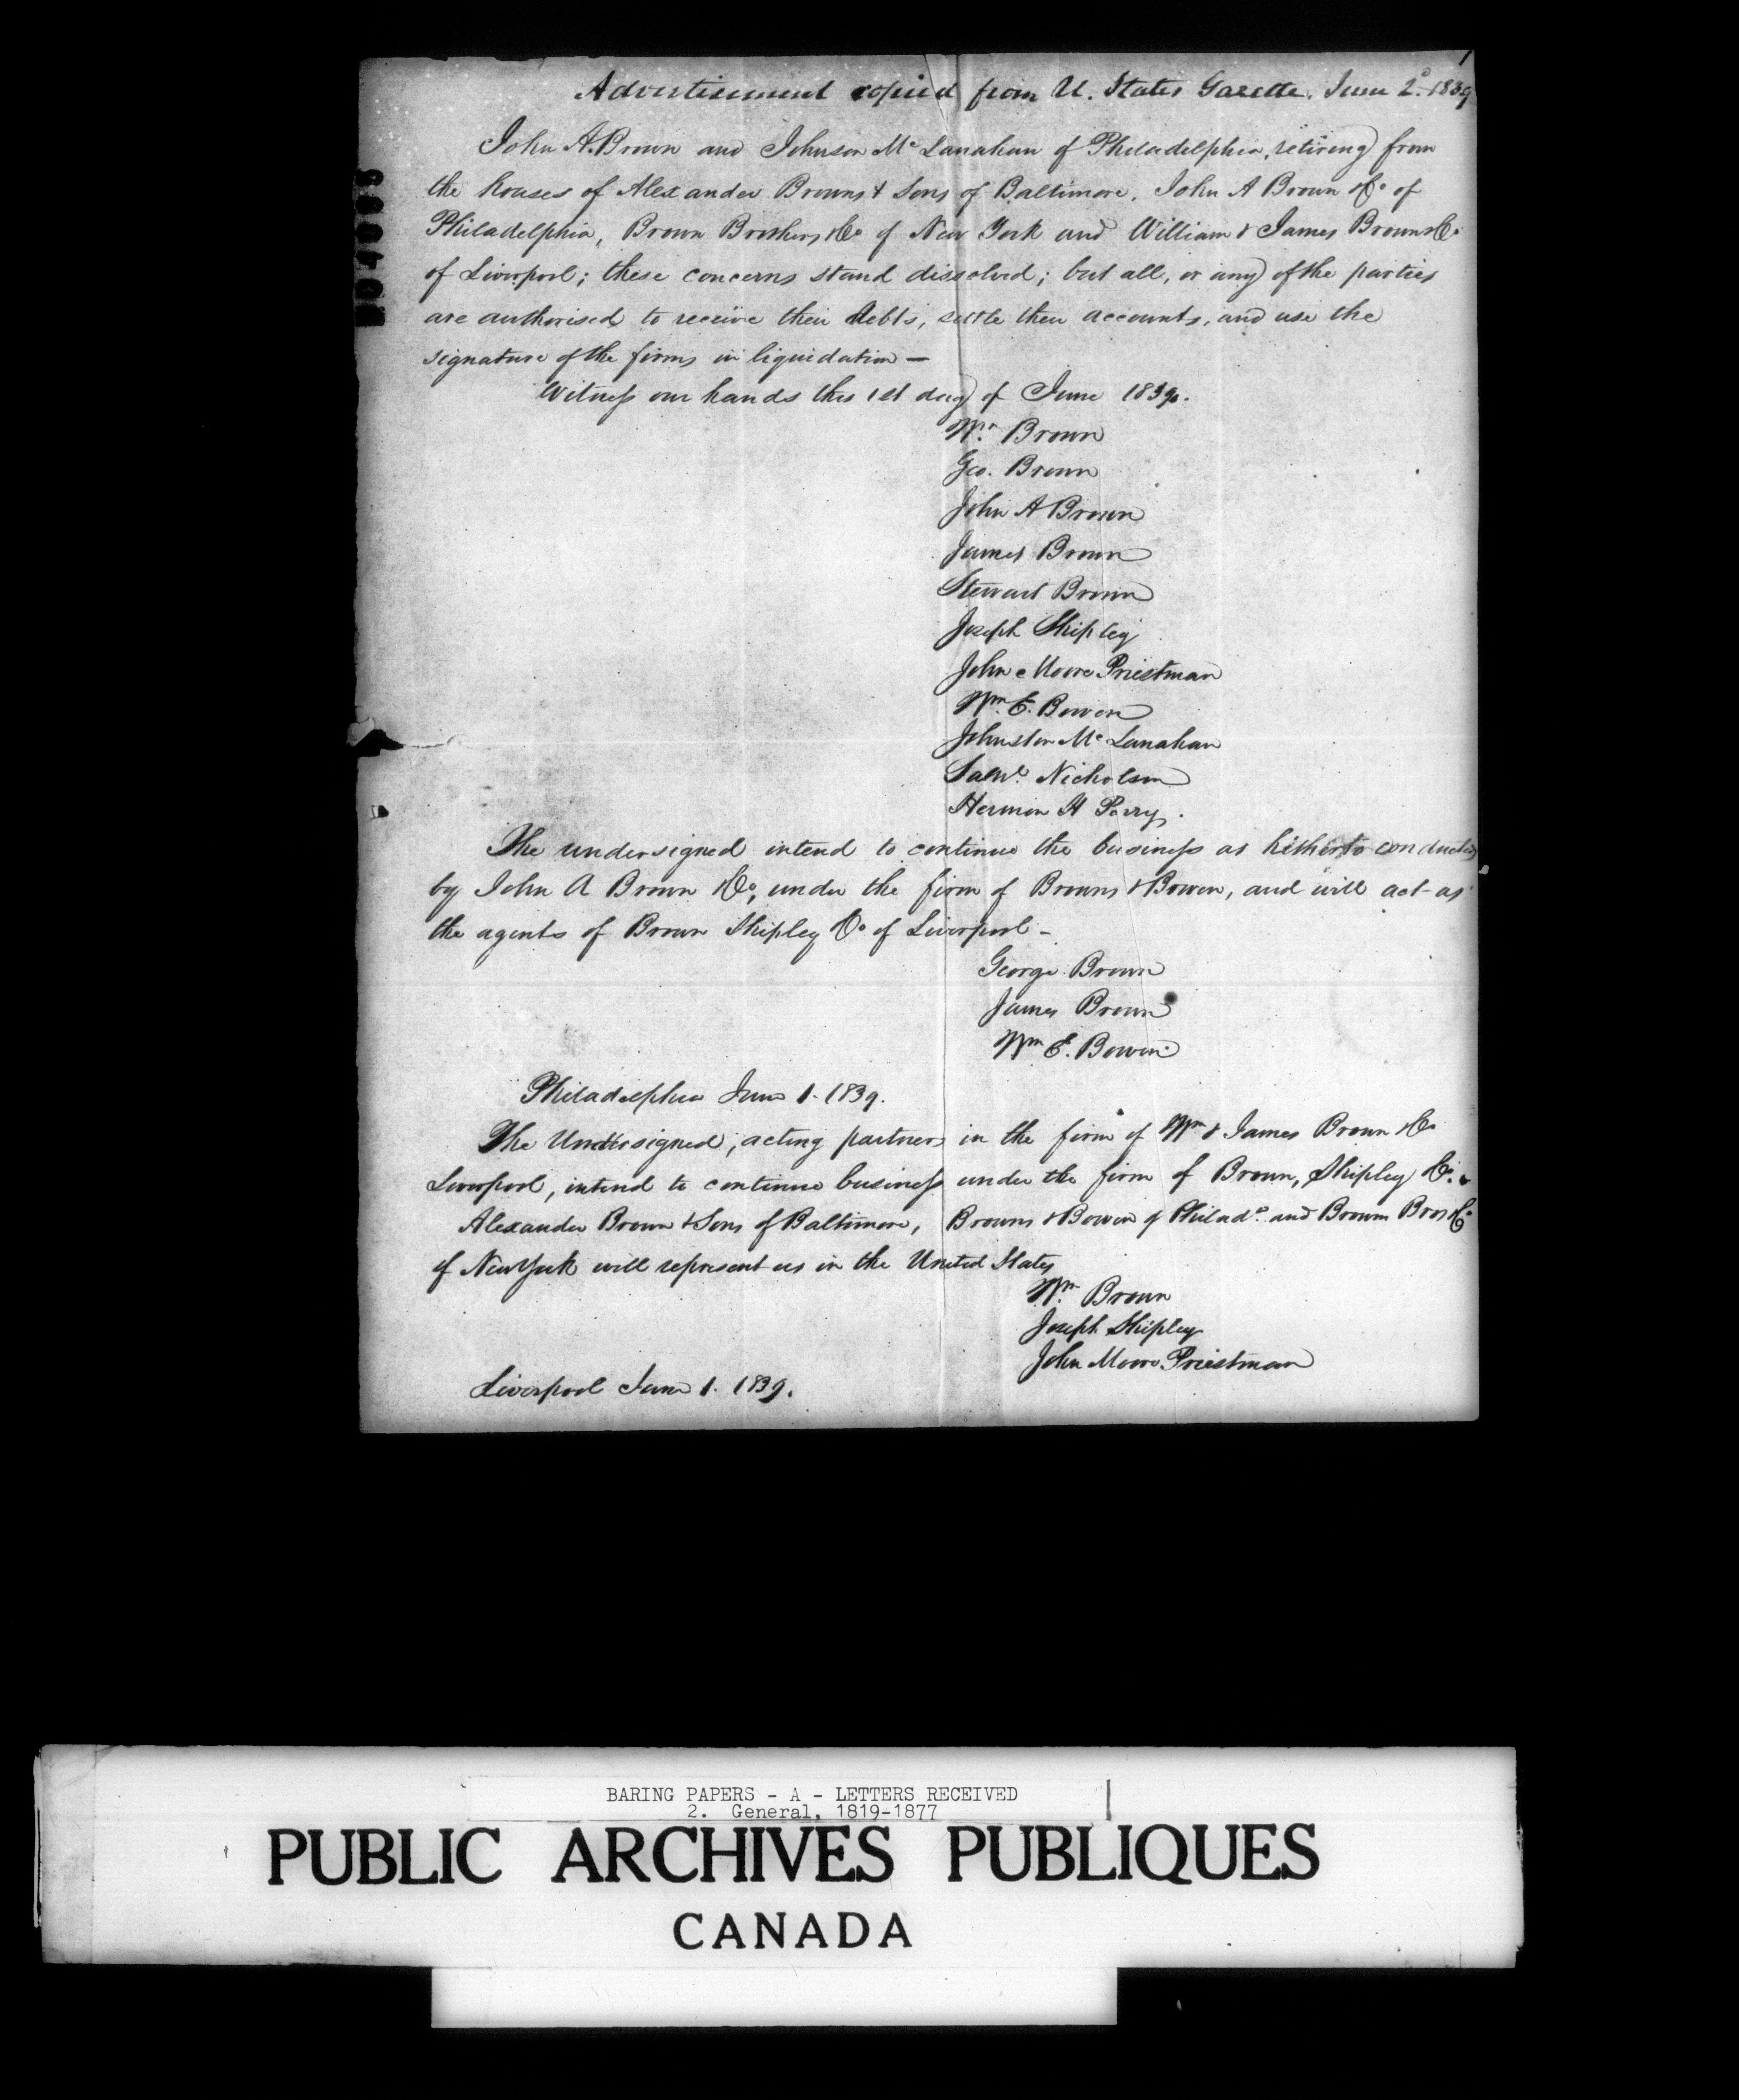 Advertisement copied from U. States Gazette. June 2d. 1839
John A. Brown and Johnson Mc Lanahan of Philadelphia, retiring from
the houses of Alexander Browns & Sons of Baltimore, John A Brown & Co of
Philadelphia, Brown Brothers & Co of New York and William & James Brown & Co
of Liverpool; these concerns stand dissolved; but all, or any of the parties
are authorised to receive their debts, settle their accounts, and use the
signature of the firms in liquidation —
Witness our hands this 1st day of June 1839.
Wm Brown
Geo. Brown
John A Brown
James Brown
Stewart Brown
Joseph Shipley
John Moore Priestman
Wm E. Bowen
Johnston Mc Lanahan
Saml. Nicholson
Hermon H Perry.
The undersigned intend to continue the business as hitherto conducted
by John A Brown & Co, under the firm of Browns & Bowen, and will act as
the agents of Brown Shipley & Co of Liverpool -
George Brown
James Brown
Wm E. Bowen
Philadelphia June 1. 1839.
The Undersigned, acting partners in the firm of Wm & James Brown & Co
Liverpool, intend to continue business under the firm of Brown, Shipley & Co.
Alexander Brown & Sons of Baltimore, Browns & Bowen of Philada. and Brown Bros & Co
of New York will represent us in the United States
Wm Brown
Joseph Shipley
John Moore Priestman
Liverpool June 1. 1839.
BARING PAPERS - A - LETTERS RECEIVED
2. General, 1819-1877
PUBLIC ARCHIVES PUBLIQUES
CANADA